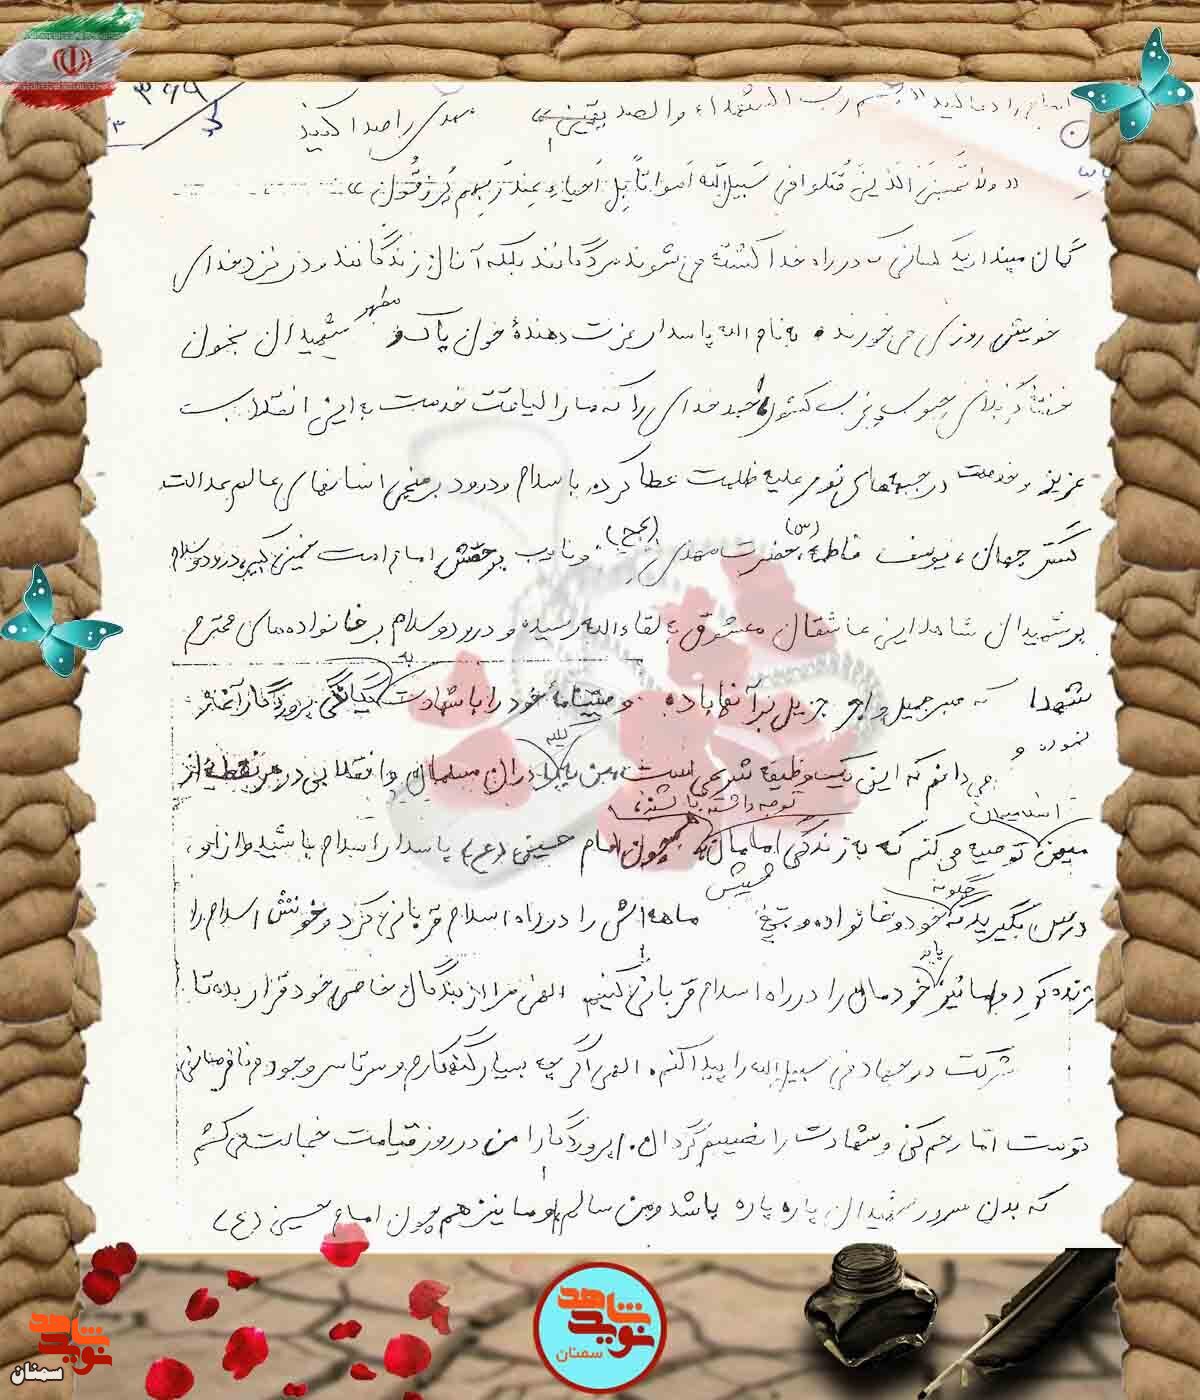 امام را دعا کنید «بسم رب الشهداء والصدیقین» مهدی را صدا کنید
«ولا تحسبن الذین قتلوا فی سبیل الله امواتاً بل احیاء عند ربهم یرزقون»
گمان مپندارید کسانی که در راه خدا کشته می شوند مردگانند بلکه آنان زندگانند و در نزد خدای
خویش روزی می خورند. بنام الله پاسدار عزت دهندهٔ خون پاک و مطهر شهیدان بخون
جنوب و غرب کشور، خدای را که ما را لیاقت خدمت به این انقلاب
عزیز و خدمت در جبهه های نور علیه ظلمت عطا کرد، با سلام و درود بر منجی انسانهای عالم عدالت
گستر جهان، یوسف فاطمه (س)، حضرت مهدی (عج) و نایب برحقش امام امت خمینی کبیر، درود و سلام
بر شهیدان شاهد این عاشقان معشوق به لقاءالله رسیده و درود و سلام بر خانواده های محترم
شهدا که صبر جمیل و اجر جزیل بر آنها باد. و خود را با شهادت به یگانگی پروردگار آغاز
نموده و
می دانم که این یک وظیفه شرعی است، من به کلیه برادران مسلمان و انقلابی در هر نقطه از
میهن اسلامیمان توصیه می کنم که به زندگی امامان توجه داشته باشند، همچون امام حسین (ع) پاسدار اسلام باشید و از او،
درس بگیرید که چگونه خود و خانواده و شیش ماهه اش را در راه اسلام قربانی کرد و خونش اسلام را
زنده کرد و ما نیز باید خودمان را در راه اسلام قربانی کنیم الهی مرا از بندگان خاص خود قرار بده تا
شرکت در جهاد فی سبیل الله را پیدا کنم. الهی اگر چه بسیار گنه کارم و سرتاسر وجودم نافرمانی
توست اما رحم کنی و شهادت را نصیبم گردان. پروردگارا من در روز قیامت خجالت می کشم
که بدن سرور شهیدان پاره پاره باشد و من سالم، و ما نیز هم چون امام حسین (ع)
نوید شاهد
سمنان
نوید شاهد
سمنان